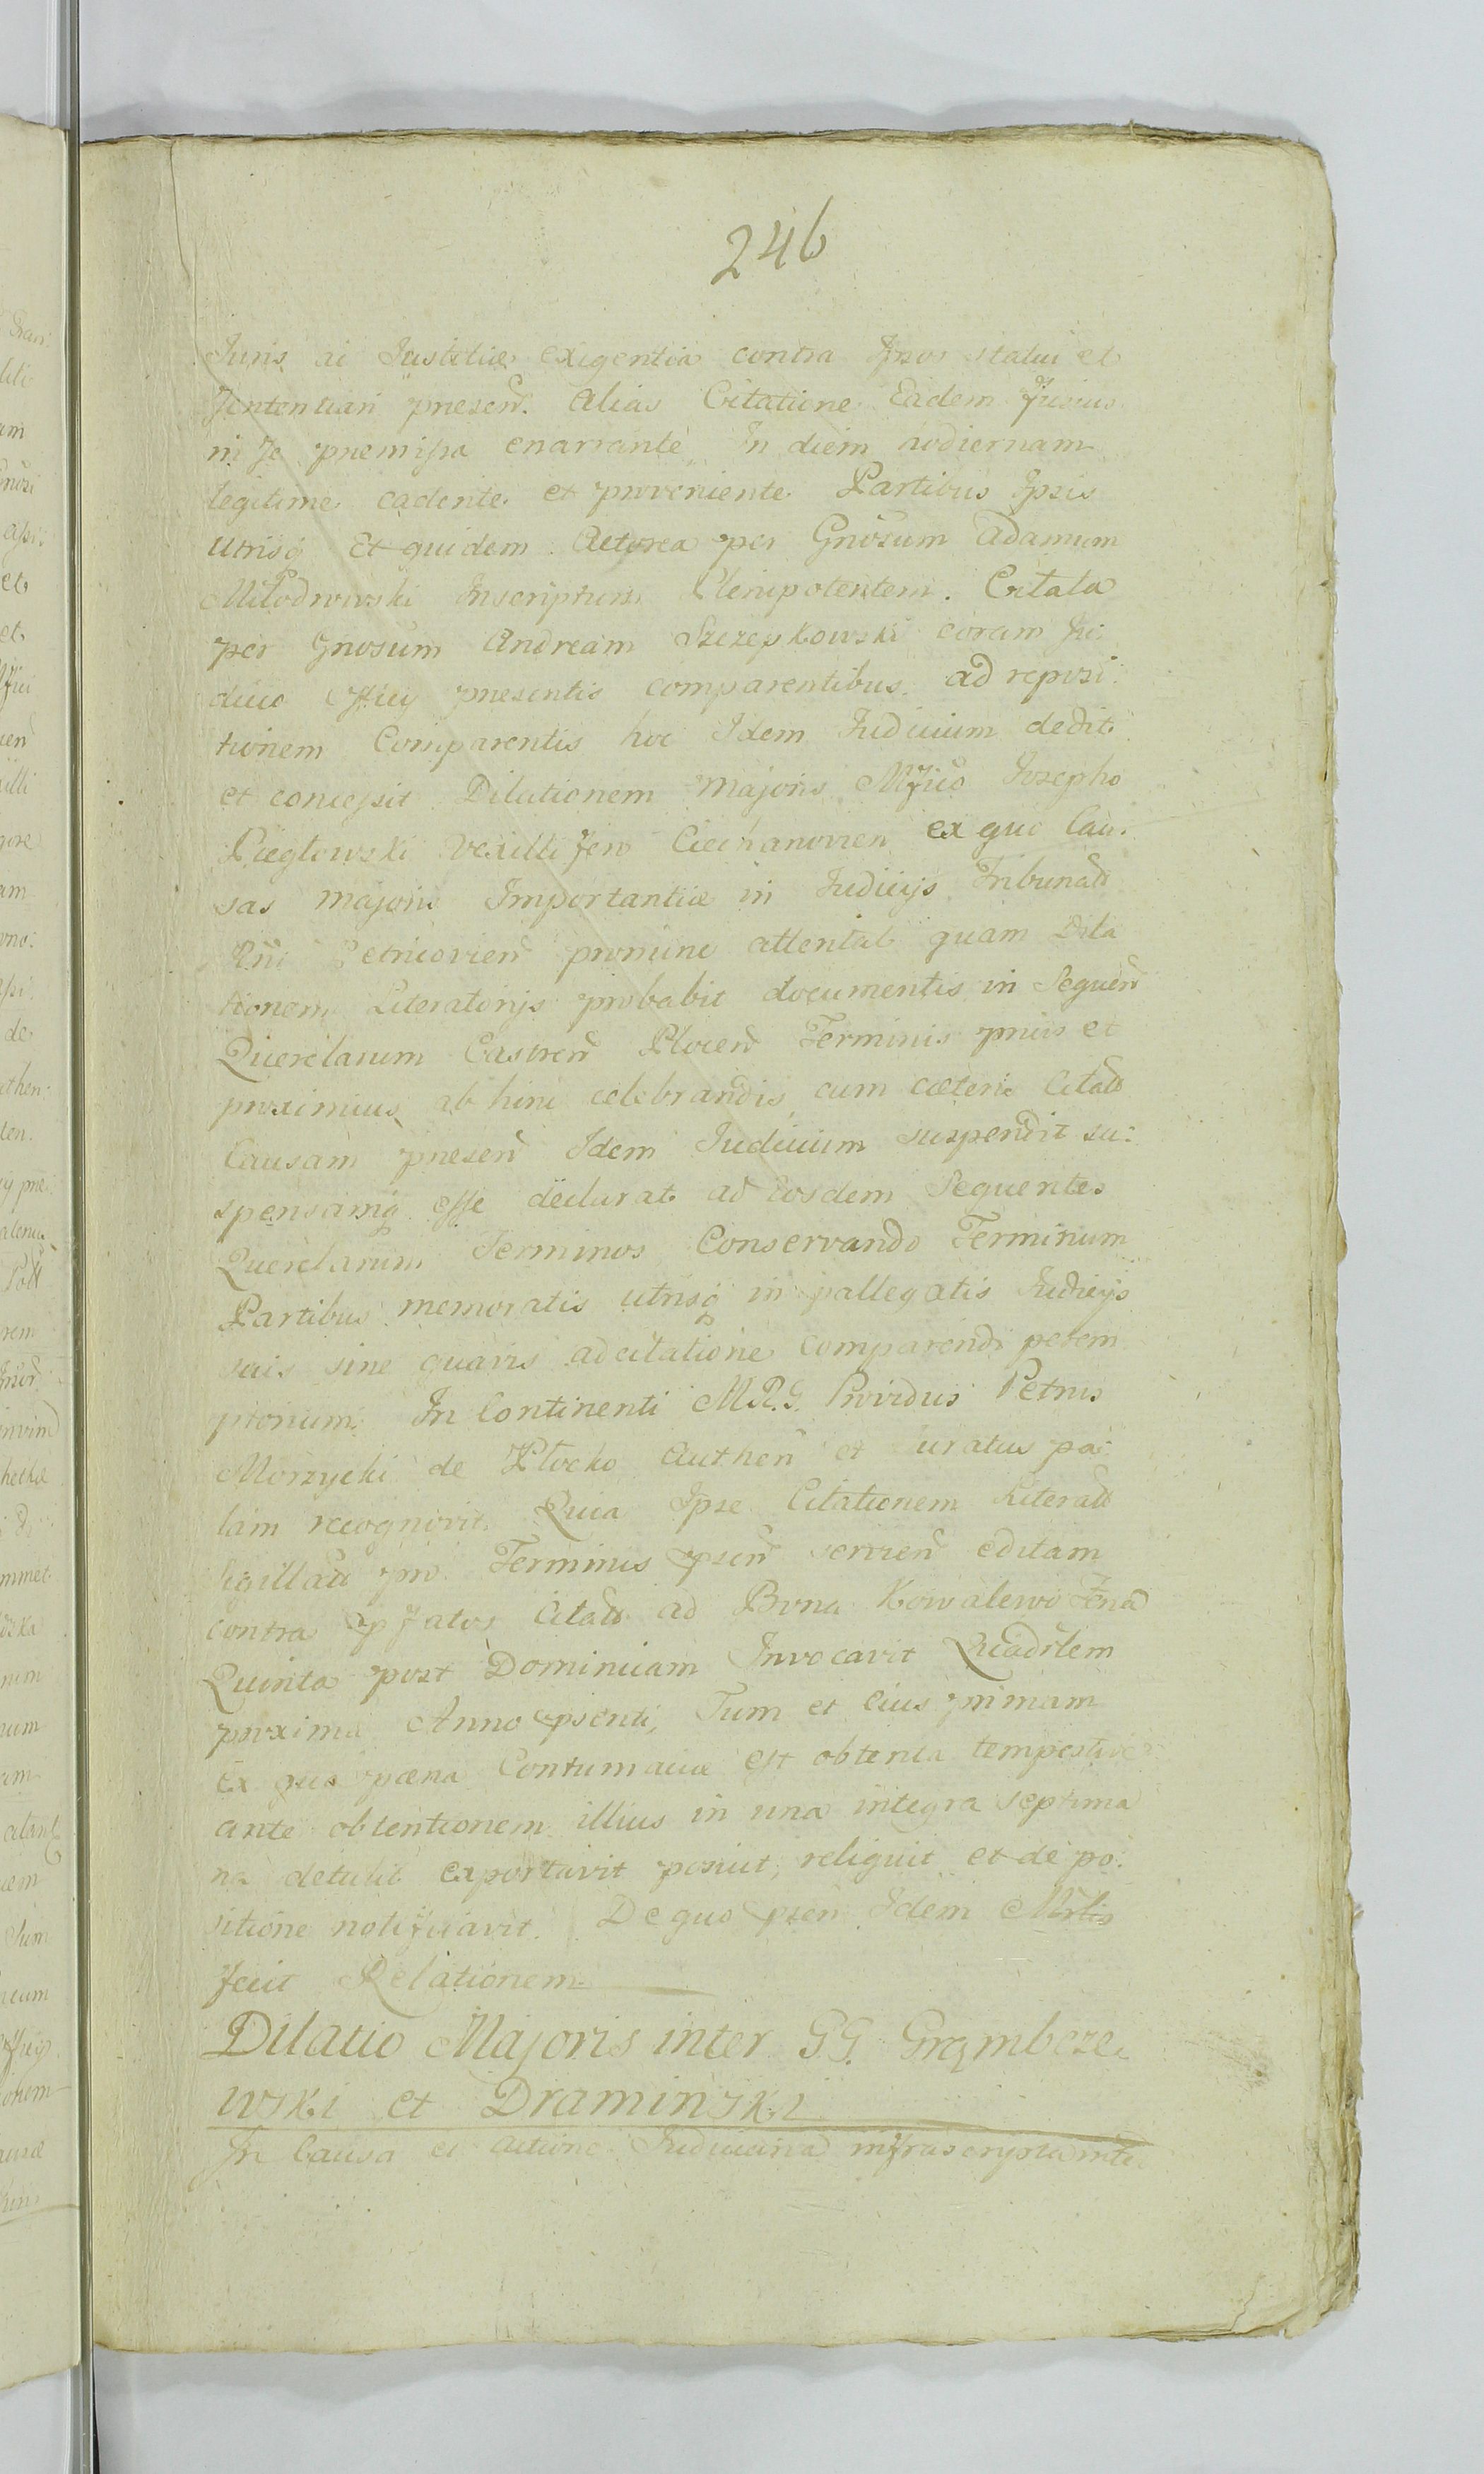 246
Juris ai Justitiæ exigentia contra Ipsos statui et
Sententiari presen. Alias Citatione Eadem fusius
in se premissa enarrante In diem hodiernam
legitime cadente et proveniente Partibus Ipsis
utrisq Et quidem Actorea per Gnosum Adamum
Miłodrowski Inscriptum Plenipotentem. Citata
per Gnosum Andream Szczepkowski coram Ju:
dicio Offii presentis comparentibus. ad reposi:
tionem Comparentis hoc Idem Judicium dedit
et concessit Dilationem Majoris Mfico Josepho
Pięgłowski Vexillifero Ciechanovien ex quo Cau:
sas majoris Importantiæ in Judicijs Tribunal
Rni Petricovien pronunc attentat quam Dila
tionem Literatorijs probabit documentis in Sequen
Querelarum Castren Plocen Terminis priis et
proximius ab hinc celebrandis cum cæteris Citat
Causam presen Idem Judicium suspendit su:
spensamq esse declarat ad Eosdem Sequentes
Querelarum Terminos Conservando Terminum
Partibus memoratis utrisq in pallegatis Judicijs
suis sine quavis adcitatione comparendi perem
ptorium. In Continenti M.R.G. Providus Petrus
Morzycki de Płocko Authen et uratus pa:
lam recognovit Quia Ipse Citationem Literat
Sigillat pro Terminis psen servien editam
contra pfatos Citat ad Bona Kowalewo Fria
Quinta post Dominicam Invocavit Quadrlem
proxima Anno psenti, Tum et Eius primam
Ex qua pæna Contumaciæ est obtenta tempestive
ante obtentionem illius in una integra septima
na detulit exportavit posuit, reliquit et de po:
sitione notificavit. De quo psen Idem Mrlis
fecit Relationem
Dilatio Majoris inter GG. Grąmbcze:
wski et Dramiński
In Causa et Actione Judiciaria infrascripta inter